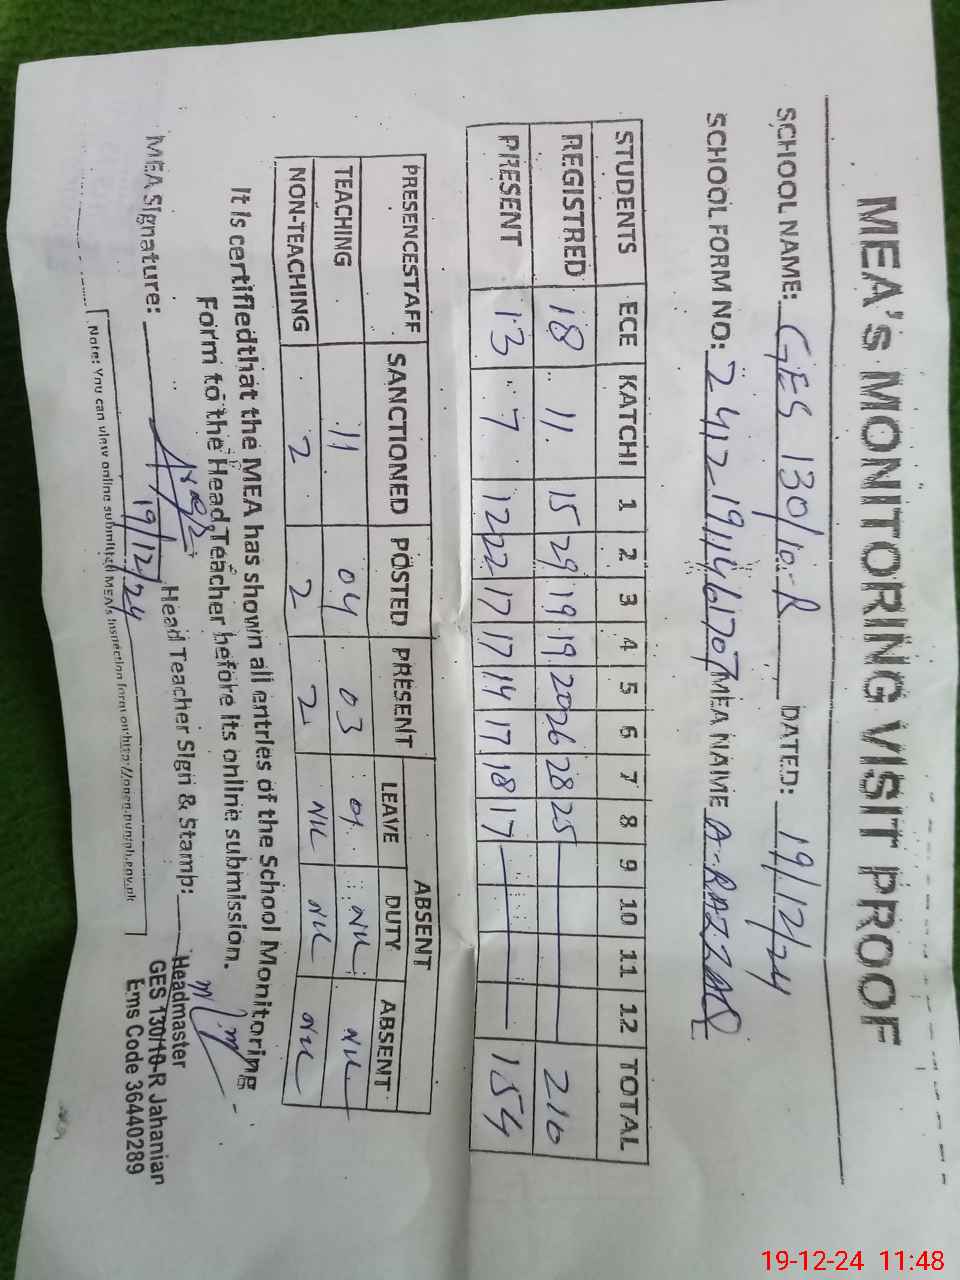 MEA's MONITORING VISIT PROOF
SCHOOL NAME: GES 130/10-R DATED: 19/12/24
SCHOOL FORM NO: 2412191146170 MEA NAME A-RAZZAQ
STUDENTS ECE KATCHI 1 2 3 4 5 6 7 8 9 10 11 12 TOTAL
REGISTRED 18 11 15 29 19 19 20 26 28 25 210
PRESENT 13 7 12 22 17 17 14 17 18 17 154
PRESENCESTAFF SANCTIONED POSTED PRESENT ABSENT
LEAVE DUTY ABSENT
TEACHING 11 04 03 01 NIL NIL
NON-TEACHING 2 2 2 NIL NIL NIL
It is certifiedthat the MEA has shown all entries of the School Monitoring
Form to the Head Teacher before its online submission.
MEA Signature: Head Teacher Sign & Stamp:
19/12/24
Headmaster
GES 130/10-R Jahanian
Ems Code 36440289
Note: You can view online submitted MEA's inspection form on:http://open.punjab.gov.pk
19-12-24 11:48